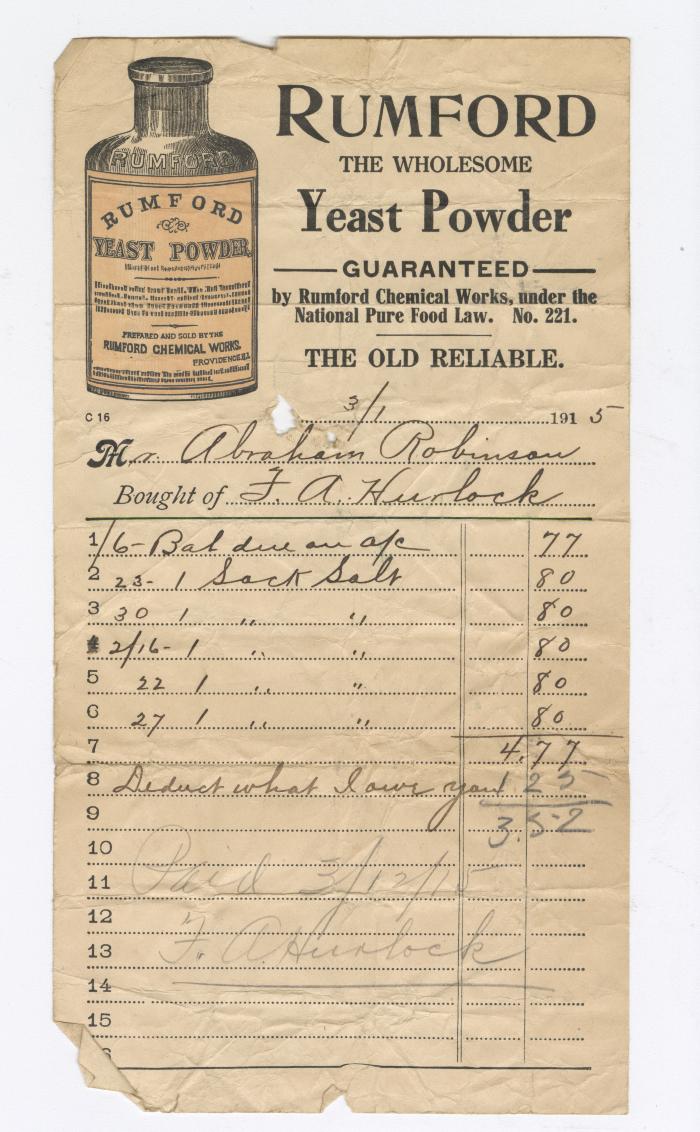 RUMFORD
RUMFORD
YEAST POWDER.
PREPARED AND SOLD BY THE
RUMFORD CHEMICAL WORKS.
PROVIDENCE.R.I.
RUMFORD
THE WHOLESOME
Yeast Powder
GUARANTEED
by Rumford Chemical Works, under the
National Pure Food Law. No. 221.
THE OLD RELIABLE.
C 16
3/1 1915
Mr. Abraham Robinson
Bought of F. A. Hurlock
1 1/6- Bal due on a/c 77
2 23- 1 Sack Salt 80
3 30 1 " " 80
4 2/16- 1 " " 80
5 22 1 " " 80
6 27 1 " " 80
7 4.77
8 Deduct what I owe you 1 25
9 3.52
10
11 Paid 3/12/15
12
13 F. A Hurlock
14
15